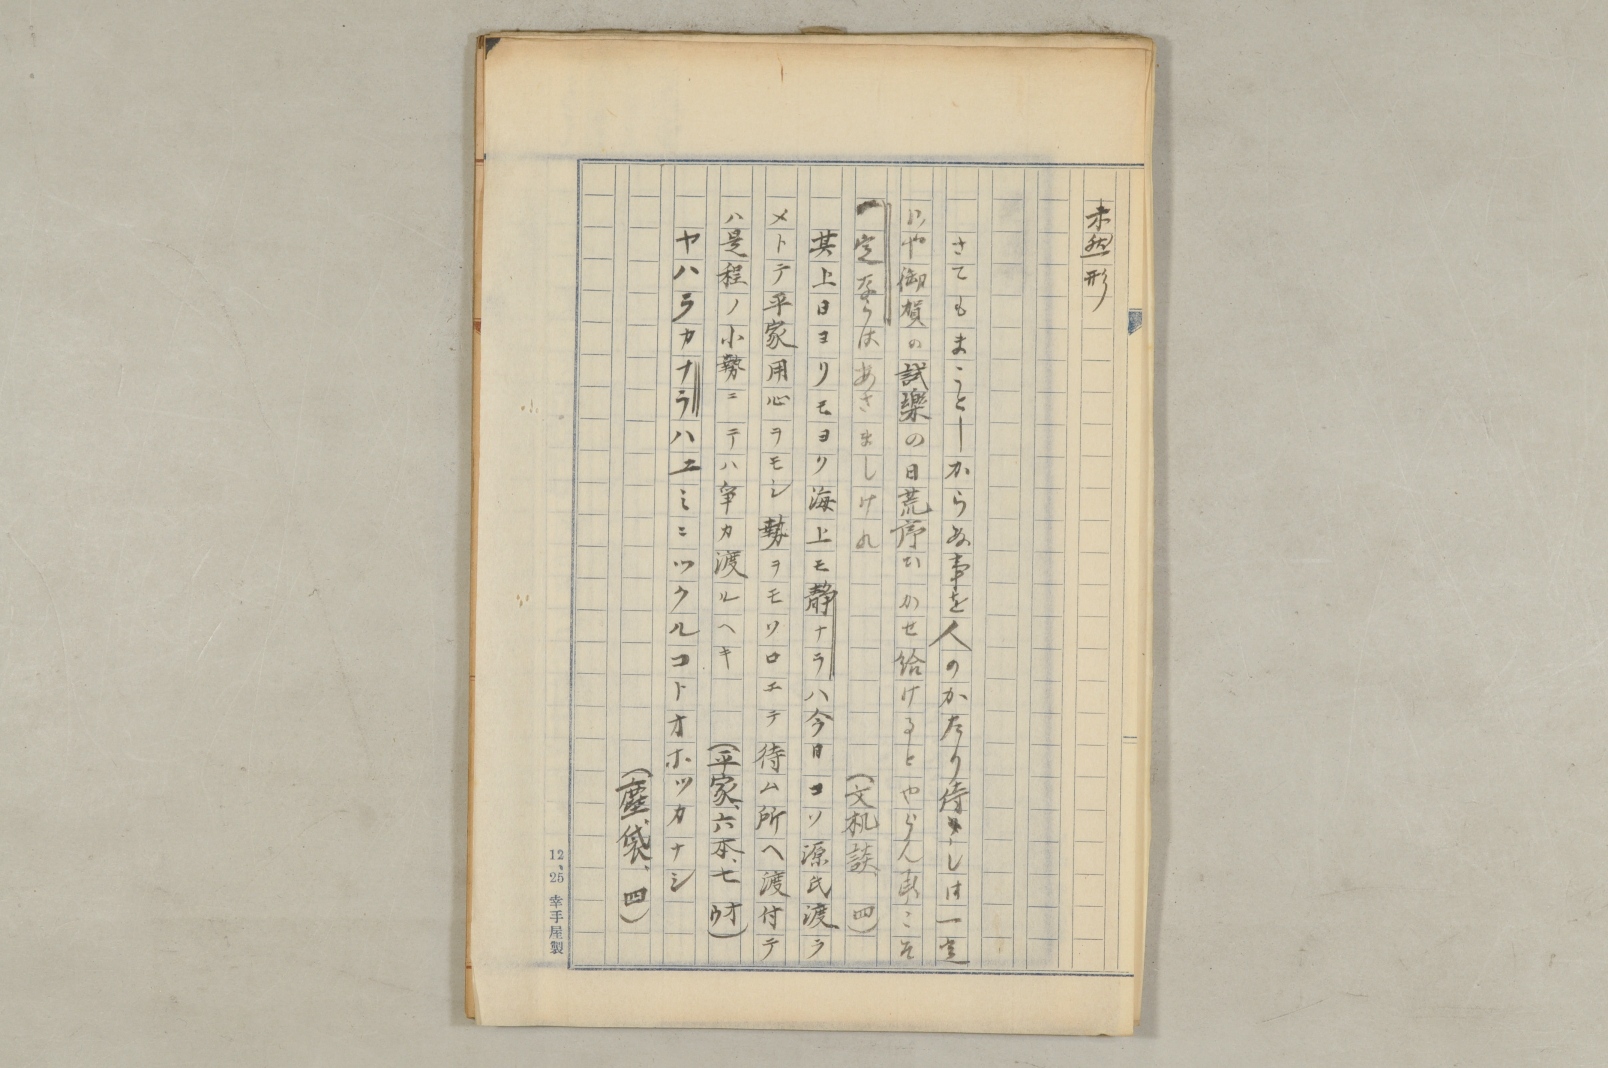 未然形
さてもまことしからぬ事を人のかたり侍りしは一定
にや御賀の試樂の日荒序ふかせ給けるとやらん事こそ
一定ならはあさましけれ
(文机談、四)
其上日ヨリモヨリ海上モ静ナラハ今日コソ源氏渡ラ
メトテ平家用心ヲモシ勢ヲモソロエテ待ム所ヘ渡付テ
ハ是程ノ小勢ニテハ争カ渡ルヘキ
(平家、六本、七ウオ)
ヤハラカナラハエミニツクルコトオホツカナシ
(塵袋、四)
12、25 幸手屋製